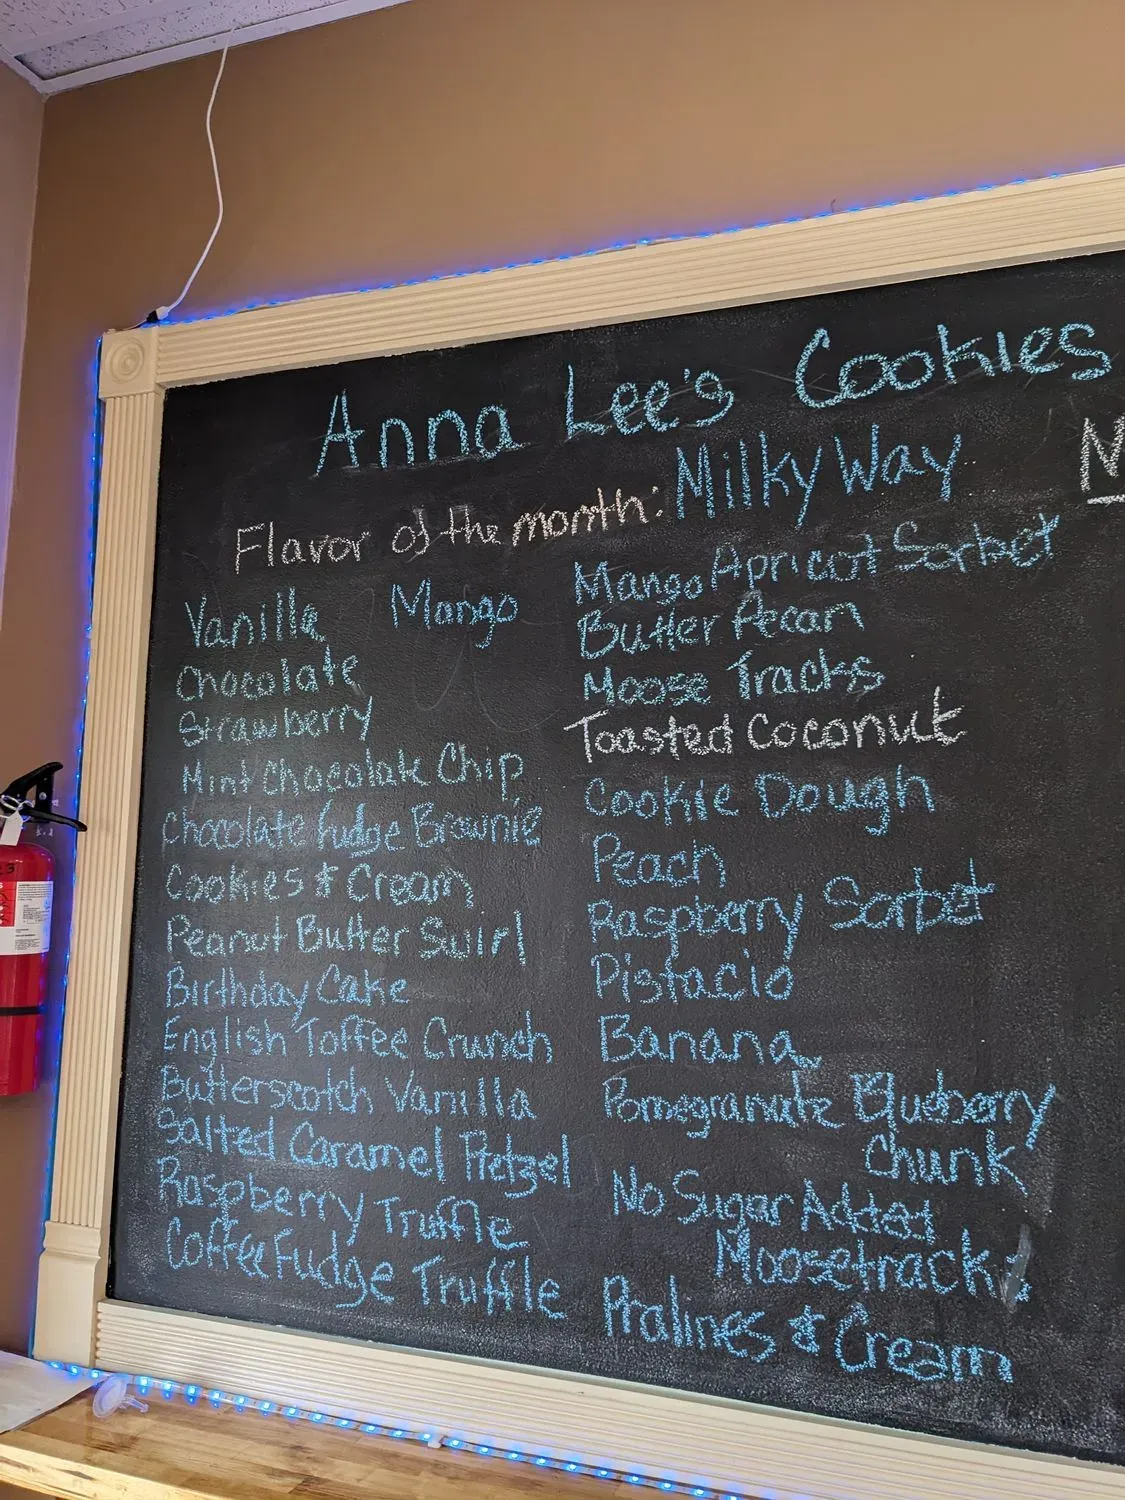 Anna Lee's Cookies
Flavor of the month: Milky Way
N
Vanilla
Mango
Chocolate
Strawberry
Mint Chocolate Chip
Chocolate Fudge Brownie
Cookies & Cream
Peanut Butter Swirl
Birthday Cake
English Toffee Crunch
Butterscotch Vanilla
Salted Caramel Pretzel
Raspberry Truffle
Coffee Fudge Truffle
Mango Apricot Sorbet
Butter Pecan
Moose Tracks
Toasted Coconut
Cookie Dough
Peach
Raspberry Sorbet
Pistacio
Banana
Pomegranate Blueberry
Chunk
No Sugar Added
Moosetracks
Pralines & Cream